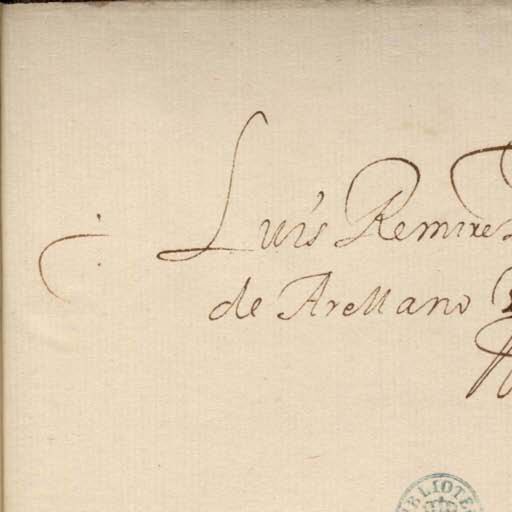 Luis Remirez
de Arellano
BIBLIOTE